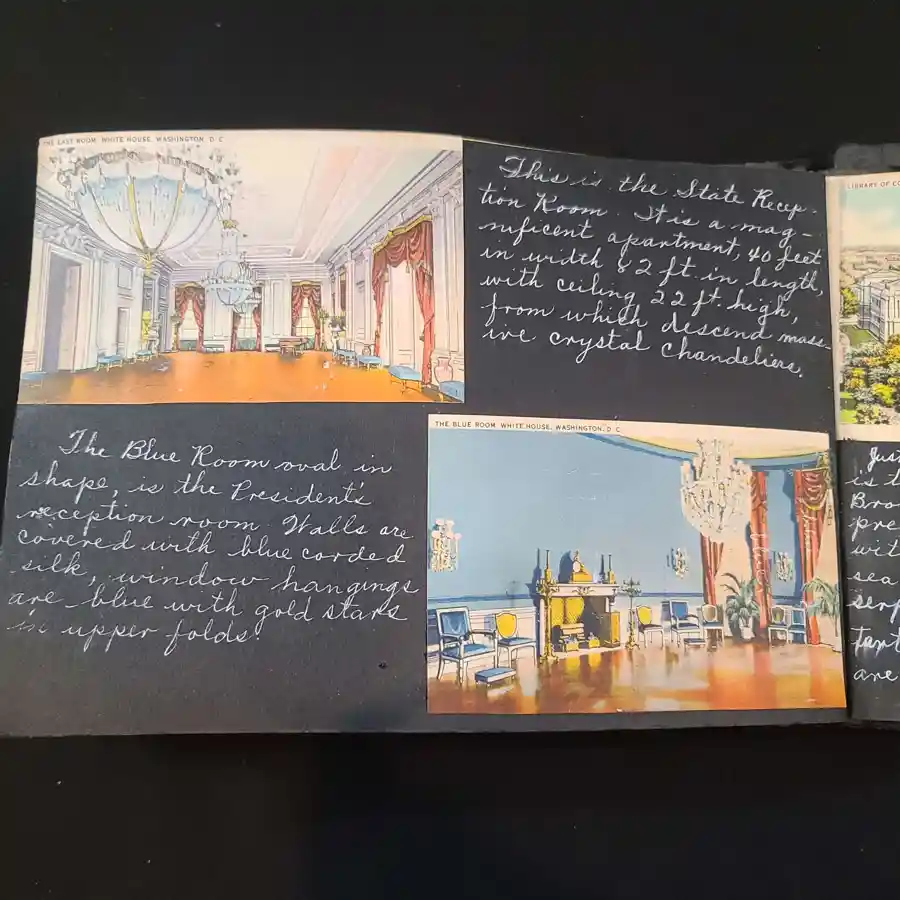 THE EAST ROOM, WHITE HOUSE, WASHINGTON, D. C.
This is the State Recep-
tion Room. It is a mag-
nificent apartment, 40 feet
in width 82 ft. in length,
with ceiling 22 ft. high,
from which descend mass-
ive crystal chandeliers.
The Blue Room oval in
shape, is the President's
reception room. Walls are
covered with blue corded
silk, window hangings
are blue with gold stars
in upper folds.
THE BLUE ROOM, WHITE HOUSE, WASHINGTON, D. C.
LIBRARY OF CO
Just
is t
Bro
pre
wit
sea
serp
tant
are